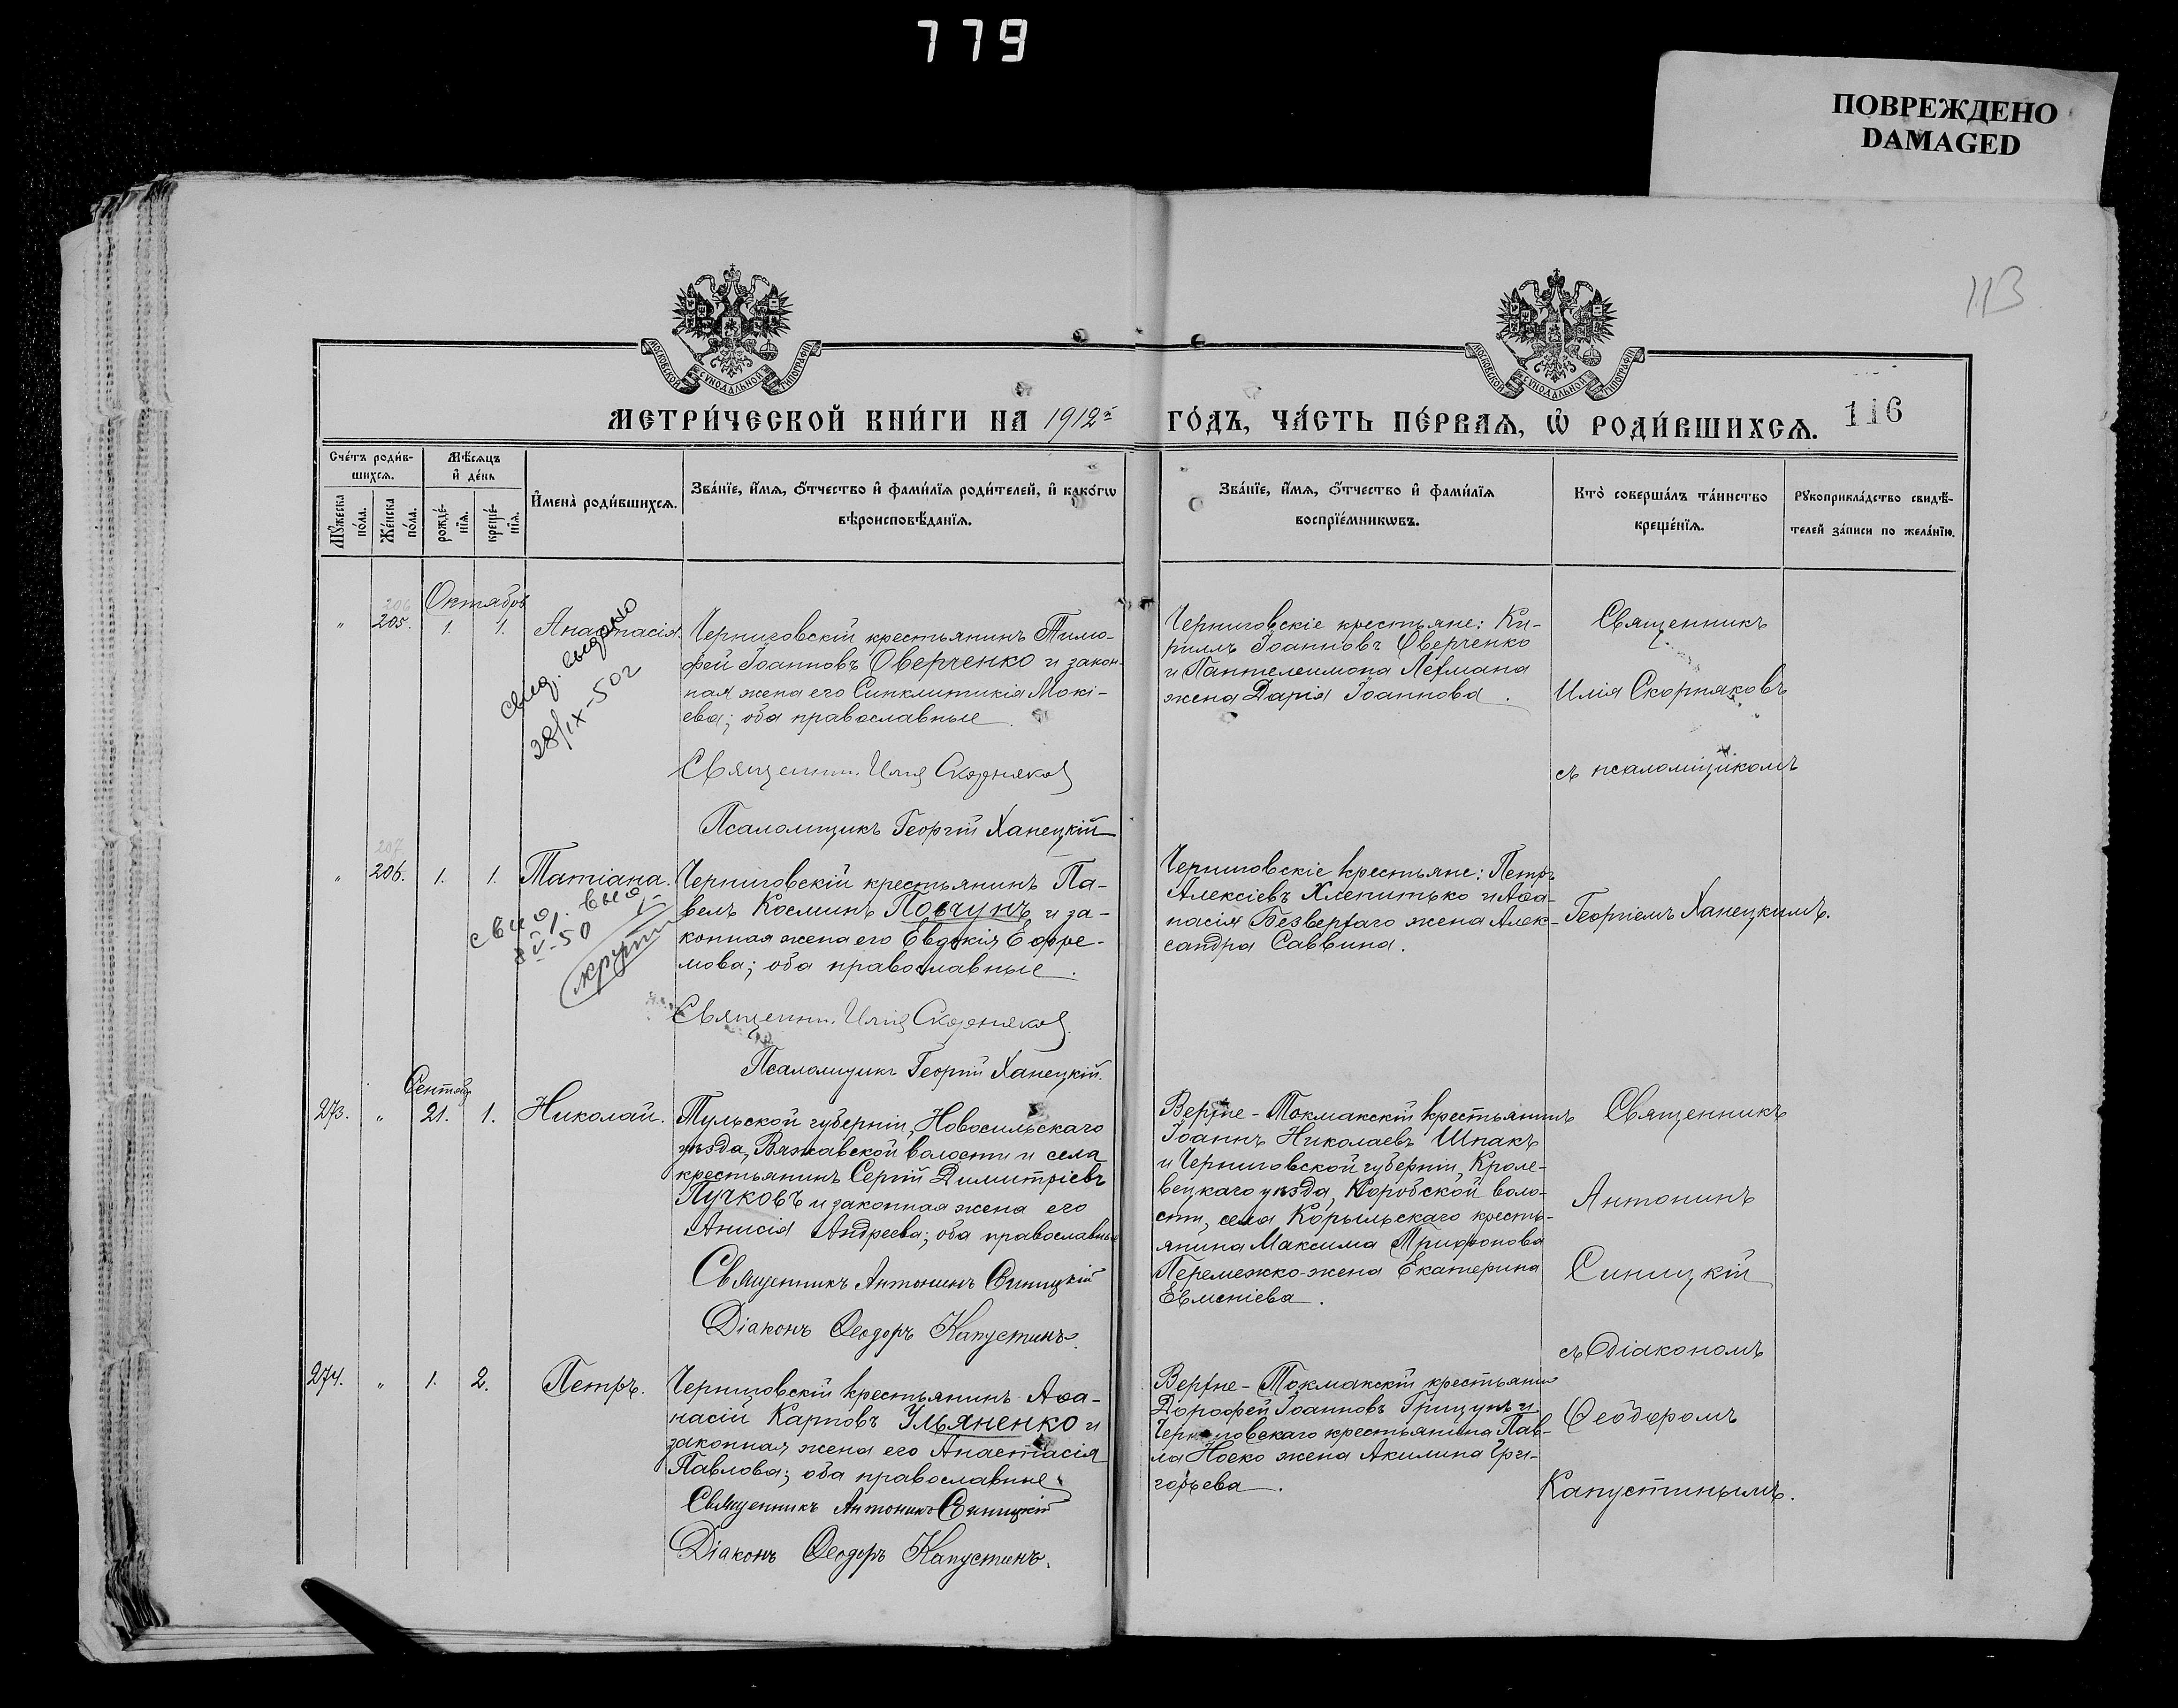 779
ПОВРЕЖДЕНО
DAMAGED
113
МОСКОВСКОЙ СѴНОДАЛЬНОЙ ТИПОГРАФІИ
МОСКОВСКОЙ СѴНОДАЛЬНОЙ ТИПОГРАФІИ
МЕТРИ́ЧЕСКОЙ КНИ́ГИ НА 1912й ГО́ДЪ, ЧА́СТЬ ПЕ́РВАѦ, Ѡ҆ РОДИ́ВШИХСѦ. 116
Сче́тъ роди́в-
шихсѧ.
Мꙋ́жеска
по́ла.
Же́нска
по́ла.
Мѣ́сѧцъ
и҆ де́нь
рожде́-
нїѧ.
креще́-
нїѧ.
И҆мена̀ роди́вшихсѧ.
Зва́нїе, и҆́мѧ, ѻ҆́тчество и҆ фами́лїѧ роди́телей, и҆ како́гѡ
вѣроисповѣ́данїѧ.
Зва́нїе, и҆́мѧ, ѻ҆́тчество и҆ фами́лїѧ
воспрїе́мникѡвъ.
Кто̀ соверша́лъ та́инство
креще́нїѧ.
Рꙋкоприкла́дство свидѣ́-
телей за́писи по жела́нїю.
Октябрь
206
" 205. 1. 1. Анастасія.
свид. выдано
28/IX-50г
Черниговскій крестьянинъ Тимо-
фей Іоанновъ Оверченко и закон-
ная жена его Синклитикія Мокі-
ева; оба православные.
Священн. Илія Скорняков
Псаломщикъ Георгій Ханецкій
Черниговскіе крестьяне: Ки-
риллъ Іоанновъ Оверченко
и Пантелеимона Лехмана
жена Дарія Іоаннова.
Священникъ
Илія Скорняковъ
съ псаломщикомъ
Георгіемъ Ханецкимъ.
207
" 206. 1. 1. Татіана.
свид. выд.
V-50
Черниговскій крестьянинъ Па-
велъ Косминъ Повчунъ и за-
конная жена его Евдокія Ефре-
мова; оба православные.
Священн. Илія Скорняков
Псаломщикъ Георгій Ханецкій.
Черниговскіе крестьяне: Петръ
Алексіевъ Хлепитько и Аѳа-
насія Безверхаго жена Алек-
сандра Саввина.
Сентябр
273. " 21. 1. Николай.
Тульской губерніи, Новосильскаго
уѣзда, Вяжавской волости и села
крестьянинъ Сергій Димитріевъ
Пучковъ и законная жена его
Анисія Андреева; оба православные
Священникъ Антонинъ Синицкій
Діаконъ Ѳеодоръ Капустинъ.
Верхне-Токмакскій крестьянинъ
Іоаннъ Николаевъ Шпакъ
и Черниговской губерніи, Кроле-
вецкаго уѣзда, Коробской воло-
сти, села Корыльскаго кресть-
янина Максима Трифонова
Перемежко жена Екатерина
Евменіева.
Священникъ
Антонинъ
Синицкій
съ діакономъ
Ѳеодоромъ
Капустинымъ.
274. " 1. 2. Петръ.
Черниговскій крестьянинъ Аѳа-
насій Карповъ Ульяненко и
законная жена его Анастасія
Павлова; оба православные.
Священникъ Антонинъ Синицкій
Діаконъ Ѳеодоръ Капустинъ.
Верхне-Токмакскій крестьянин
Дорофей Іоанновъ Грицунъ и
Черниговскаго крестьянина Пав-
ла Носко жена Акилина Гри-
горьева.